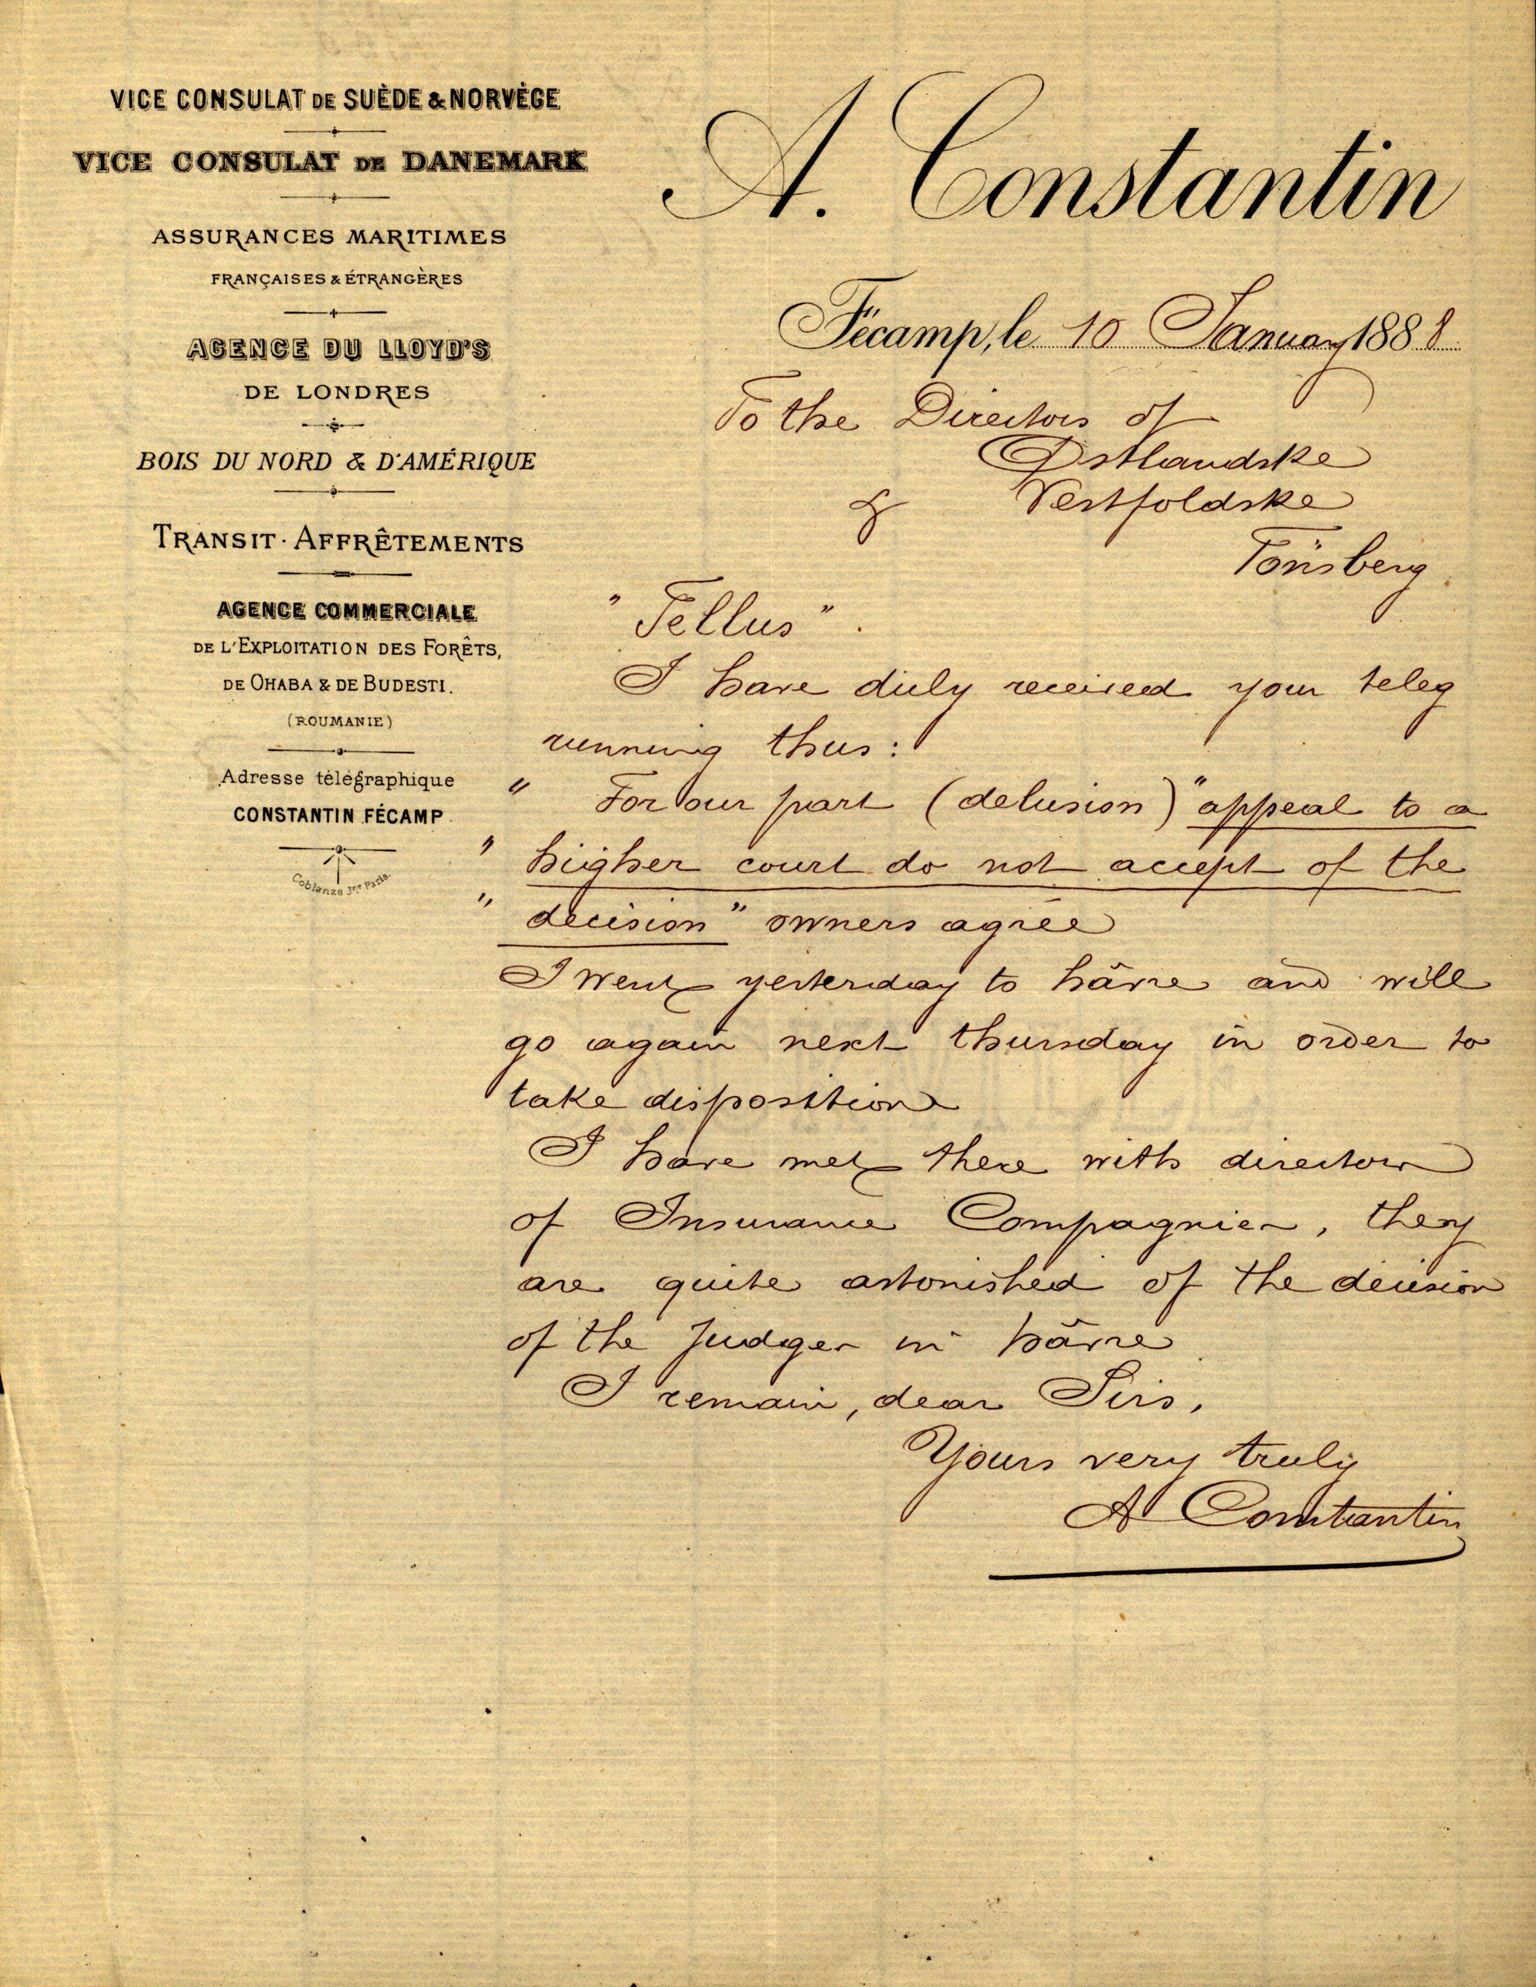 VICE CONSULAT DE SUÈDE & NORVÈGE
VICE CONSULAT DE DANEMARK
ASSURANCES MARITIMES
FRANÇAISES & ÉTRANGÈRES
AGENCE DU LLOYD'S
DE LONDRES
BOIS DU NORD & D'AMÉRIQUE
TRANSIT · AFFRÊTEMENTS
AGENCE COMMERCIALE
DE L'EXPLOITATION DES FORÊTS,
DE OHABA & DE BUDESTI.
(ROUMANIE)
Adresse télégraphique
CONSTANTIN FÉCAMP
Coblanze Jne Paris.
A. Constantin
Fécamp, le 10 January 1888
To the Directors of
Østlandske
& Vestfoldske
Tönsberg
"Tellus".
I have duly received your teleg
running thus:
" For our part (delusion) "appeal to a
" higher court do not accept of the
" decision" owners agree
I went yesterday to hâvre and will
go again next thursday in order to
take disposition
I have met there with directors
of Insurance Compagnies, they
are quite astonished of the decision
of the Judges in hâvre
I remain, dear Sirs,
Yours very truly
A Constantin